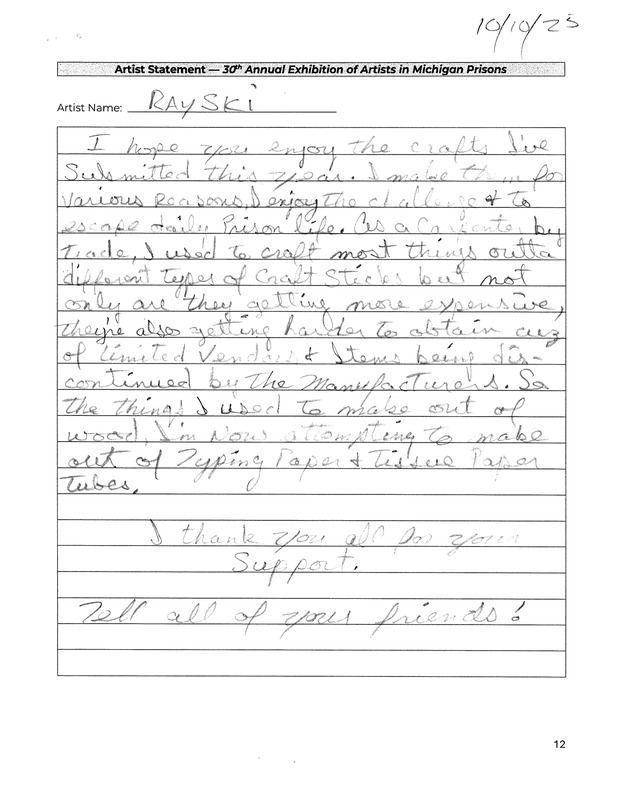 10/10/25
Artist Statement — 30th Annual Exhibition of Artists in Michigan Prisons
Artist Name: RAYSKi
I hope you enjoy the crafts I've
Submitted this year. I make them for
various Reasons, I enjoy the challenge & to
escape daily Prison life. As a Carpenter by
trade, I used to craft most things outta
different Types of Craft Sticks but not
only are they getting more expensive,
they're also getting harder to obtain cuz
of Limited Vendors & Items being dis-
continued by the Manufacturers. So
the things I used to make out of
wood, I'm Now attempting to make
out of Typing Paper & Tissue Paper
Tubes.
I thank you all for your
Support.
Tell all of your friends!
12